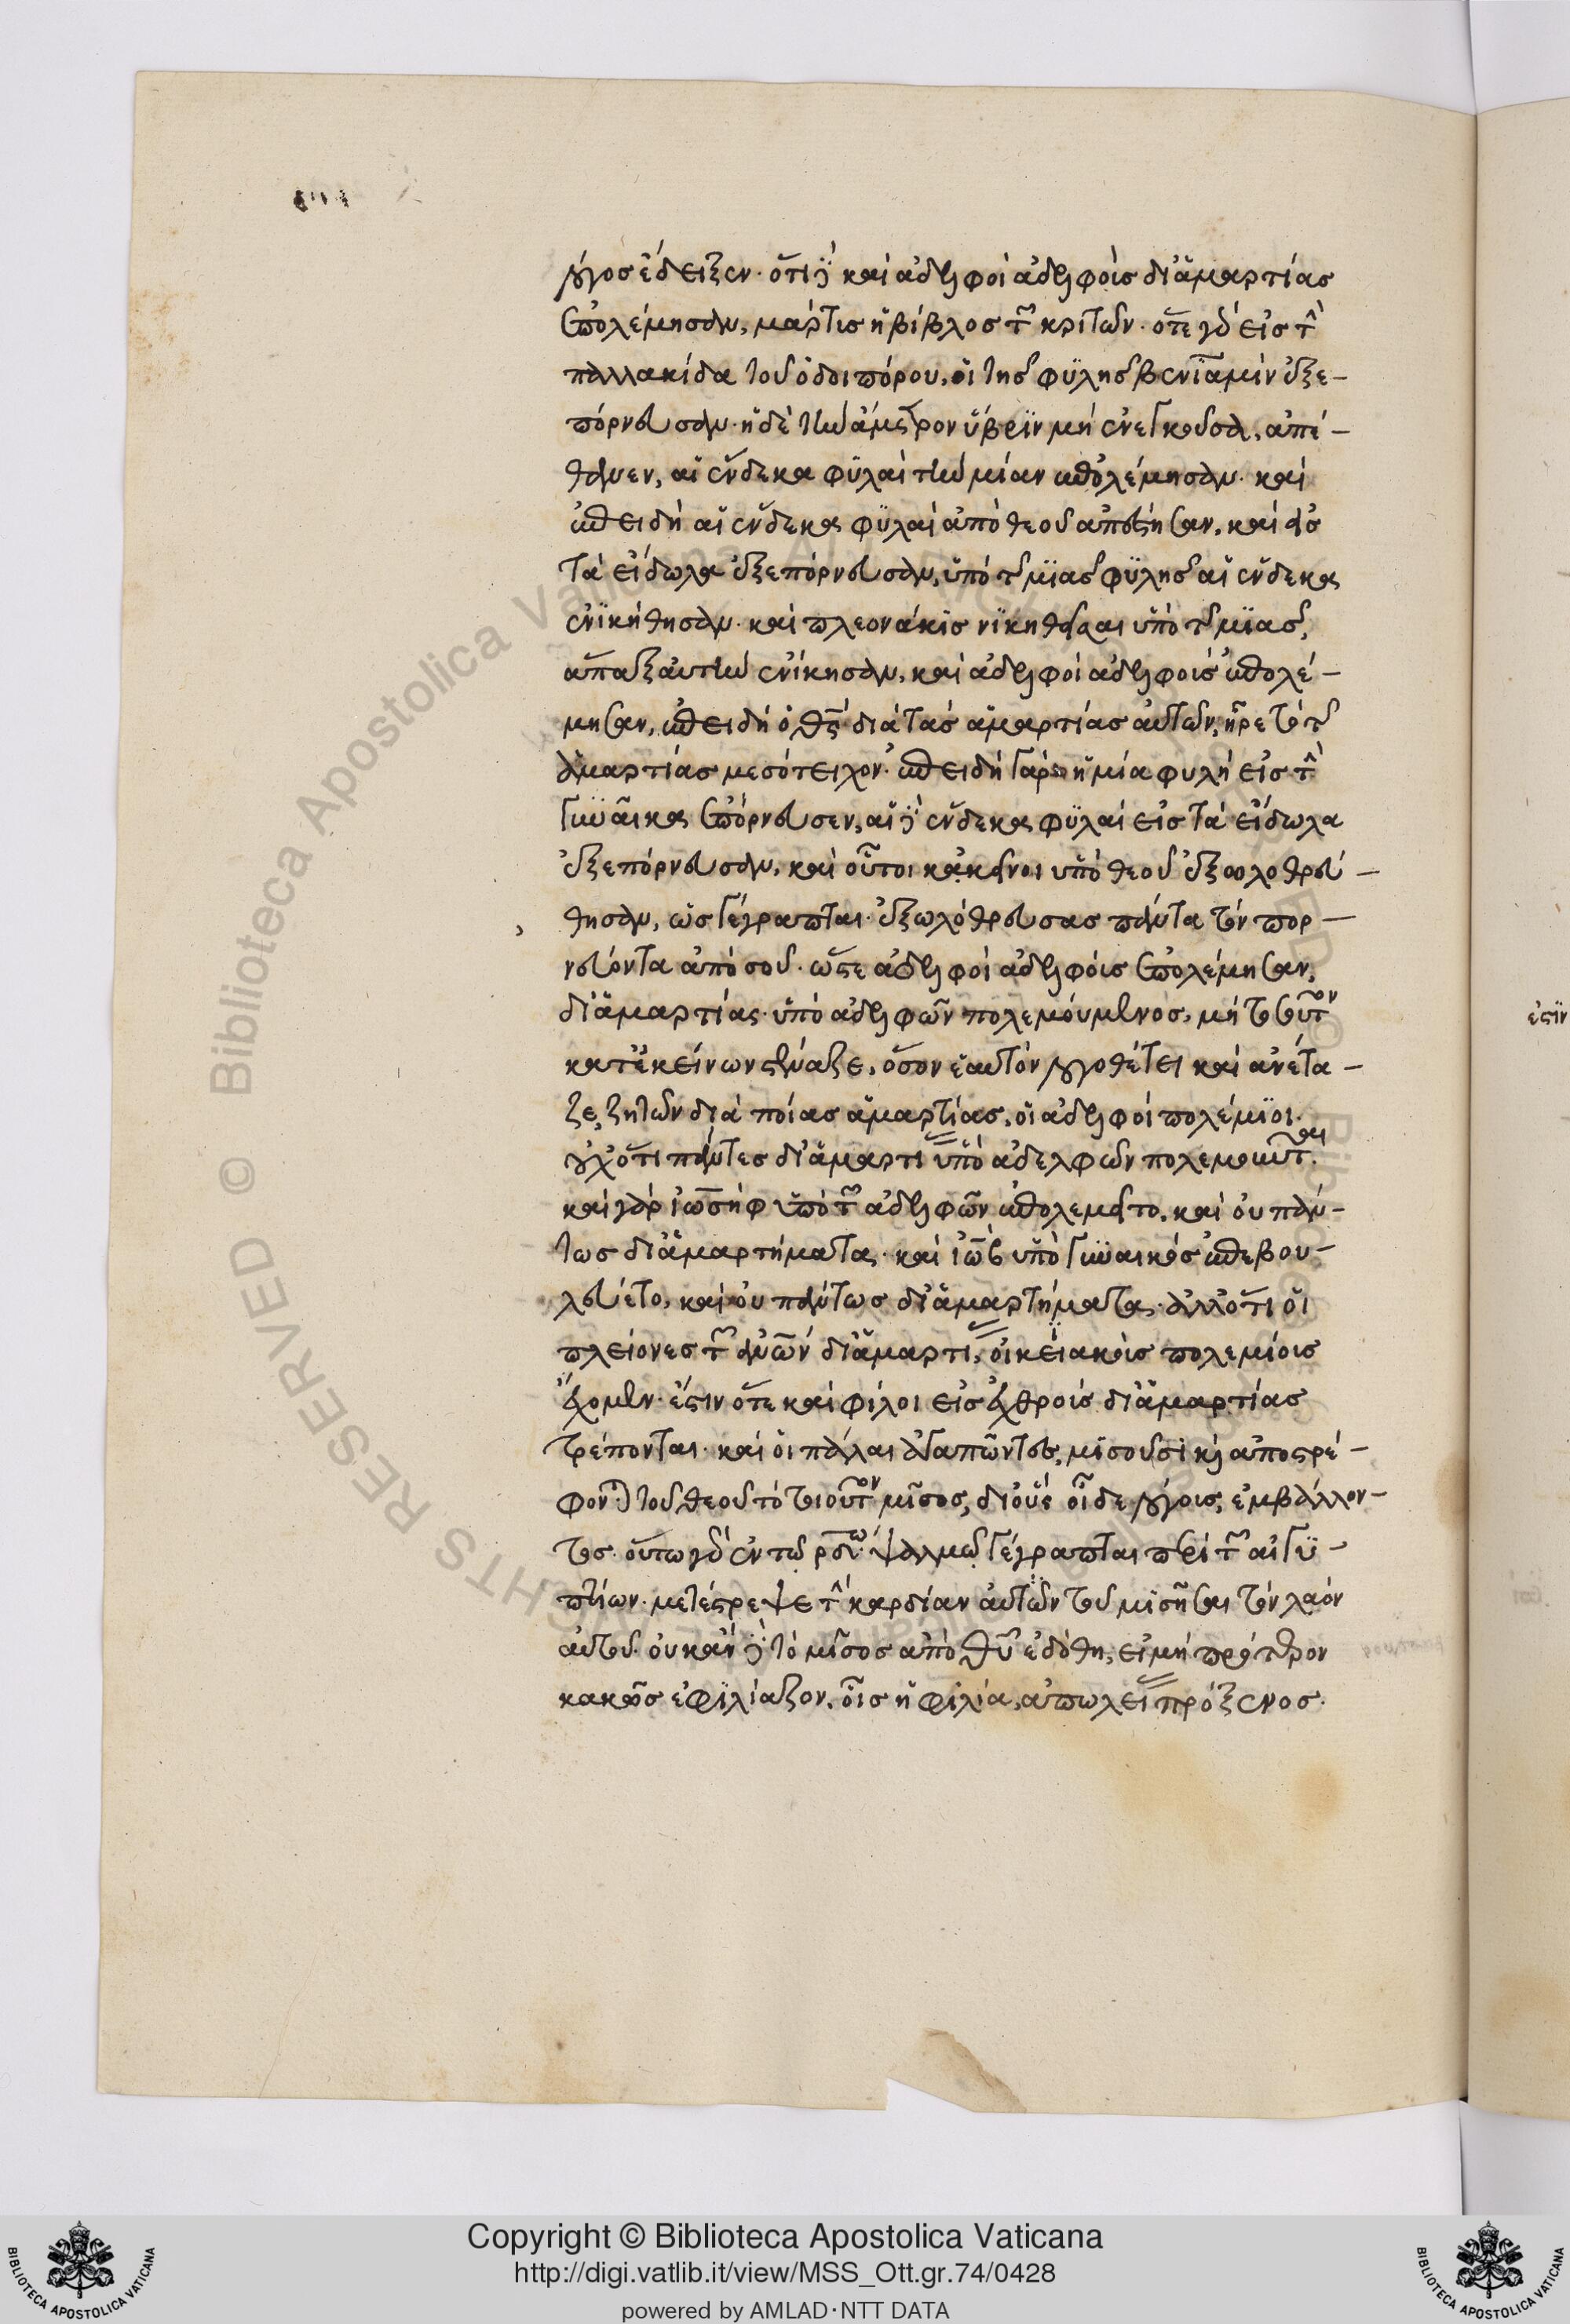 λόγος ἔδειξεν· ὅτι δὲ καὶ ἀδελφοὶ ἀδελφοῖς δι' ἁμαρτίας
ἐπολέμησαν, μάρτις ἡ βίβλος τῶν κριτῶν· ὅτε γὰρ εἰς τὴν
παλλακίδα τοῦ ὁδοιπόρου, οἱ τῆς φυλῆς βενιαμὶν ἐξε-
πόρνευσαν· ἡ δὲ τὴν ἄμετρον ὕβριν μὴ ἐνεγκοῦσα, ἀπέ-
θανεν, αἱ ἕνδεκα φυλαὶ τὴν μίαν ἐπολέμησαν· καὶ
ἐπειδὴ αἱ ἕνδεκα φυλαὶ ἀπὸ θεοῦ ἀπέστησαν, καὶ εἰς
τὰ εἴδωλα ἐξεπόρνευσαν, ὑπὸ τῆς μιᾶς φυλῆς αἱ ἕνδεκα
ἐνικήθησαν· καὶ πλεονάκις νικηθεῖσαι ὑπὸ τῆς μιᾶς,
ἅπαξ αὐτὴν ἐνίκησαν, καὶ ἀδελφοὶ ἀδελφοῖς ἐπολέ-
μησαν, ἐπειδὴ ὁ θς διὰ τὰς ἁμαρτίας αὐτῶν, ἦρε τὸ τῆς
ἁμαρτίας μεσότειχον· ἐπειδὴ γὰρ ἡ μία φυλὴ εἰς τὴν
γυναῖκα ἐπόρνευσεν, αἱ δὲ ἕνδεκα φυλαὶ εἰς τὰ εἴδωλα
ἐξεπόρνευσαν, καὶ οὗτοι κἀκεῖνοι ὑπὸ θεοῦ ἐξωλοθρεύ-
θησαν, ὡς γέγραπται· ἐξωλόθρευσας πάντα τὸν πορ-
νεύοντα ἀπὸ σοῦ· ὥστε ἀδελφοὶ ἀδελφοῖς ἐπολέμησαν,
δι' ἁμαρτίας· ὑπὸ ἀδελφῶν πολεμούμενος, μὴ τοσοῦτον
κατ' ἐκείνων στέναζε, ὅσον ἑαυτὸν λογοθέτει καὶ ἀνέτα-
ζε, ζητῶν διὰ ποίας ἁμαρτίας, οἱ ἀδελφοὶ πολέμιοι·
οὐχ ὅτι πάντες δι' ἁμαρτίας ὑπὸ ἀδελφῶν πολεμοῦνται·
καὶ γὰρ ἰωσὴφ ὑπὸ τῶν ἀδελφῶν ἐπολεμεῖτο, καὶ οὐ πάν-
τως δι' ἁμαρτήματα· καὶ ἰὼβ ὑπὸ γυναικὸς ἐπεβου-
λεύετο, καὶ οὐ πάντως δι' ἁμαρτήματα· ἀλλ' ὅτι οἱ
πλείονες τῶν ἀνῶν δι' ἁμαρτίας, οἰκειακοῖς πολεμίοις
ἔχομεν· ἔστιν ὅτε καὶ φίλοι εἰς ἐχθροὺς δι' ἁμαρτίας
τρέπονται· καὶ οἱ πάλαι ἀγαπῶντες, μισοῦσι κὶ ἀποστρέ-
φονται τοῦ θεοῦ τὸ τοιοῦτον μῖσος, δι' οὓς οἶδε λόγοις, ἐμβάλλον-
τος· οὕτω γὰρ ἐν τῷ ρδῳ ψαλμῷ γέγραπται περὶ τῶν αἰγυ-
πτίων· μετέστρεψε τὴν καρδίαν αὐτῶν τοῦ μισῆσαι τὸν λαὸν
αὐτοῦ· οὐκ ἂν δὲ τὸ μῖσος ἀπὸ θυ ἐδόθη, εἰ μὴ πρότερον
κακῶς ἐφιλίαζον, οἷς ἡ φιλία, ἀπωλείας πρόξενος·